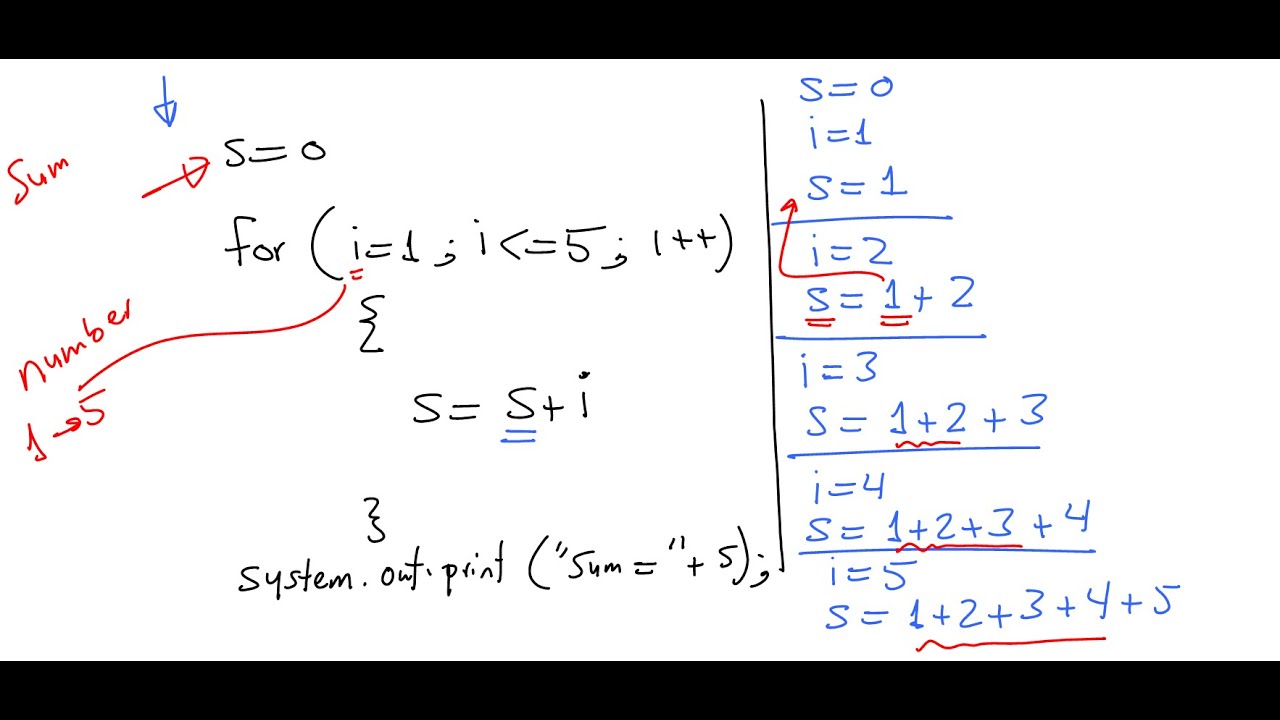 Sum
s=0
for (i=1; i<=5; i++)
{
number
1→5
s= s+i
}
system.out.print ("Sum="+s);
s=0
i=1
s=1
i=2
s=1+2
i=3
s=1+2+3
i=4
s=1+2+3+4
i=5
s=1+2+3+4+5